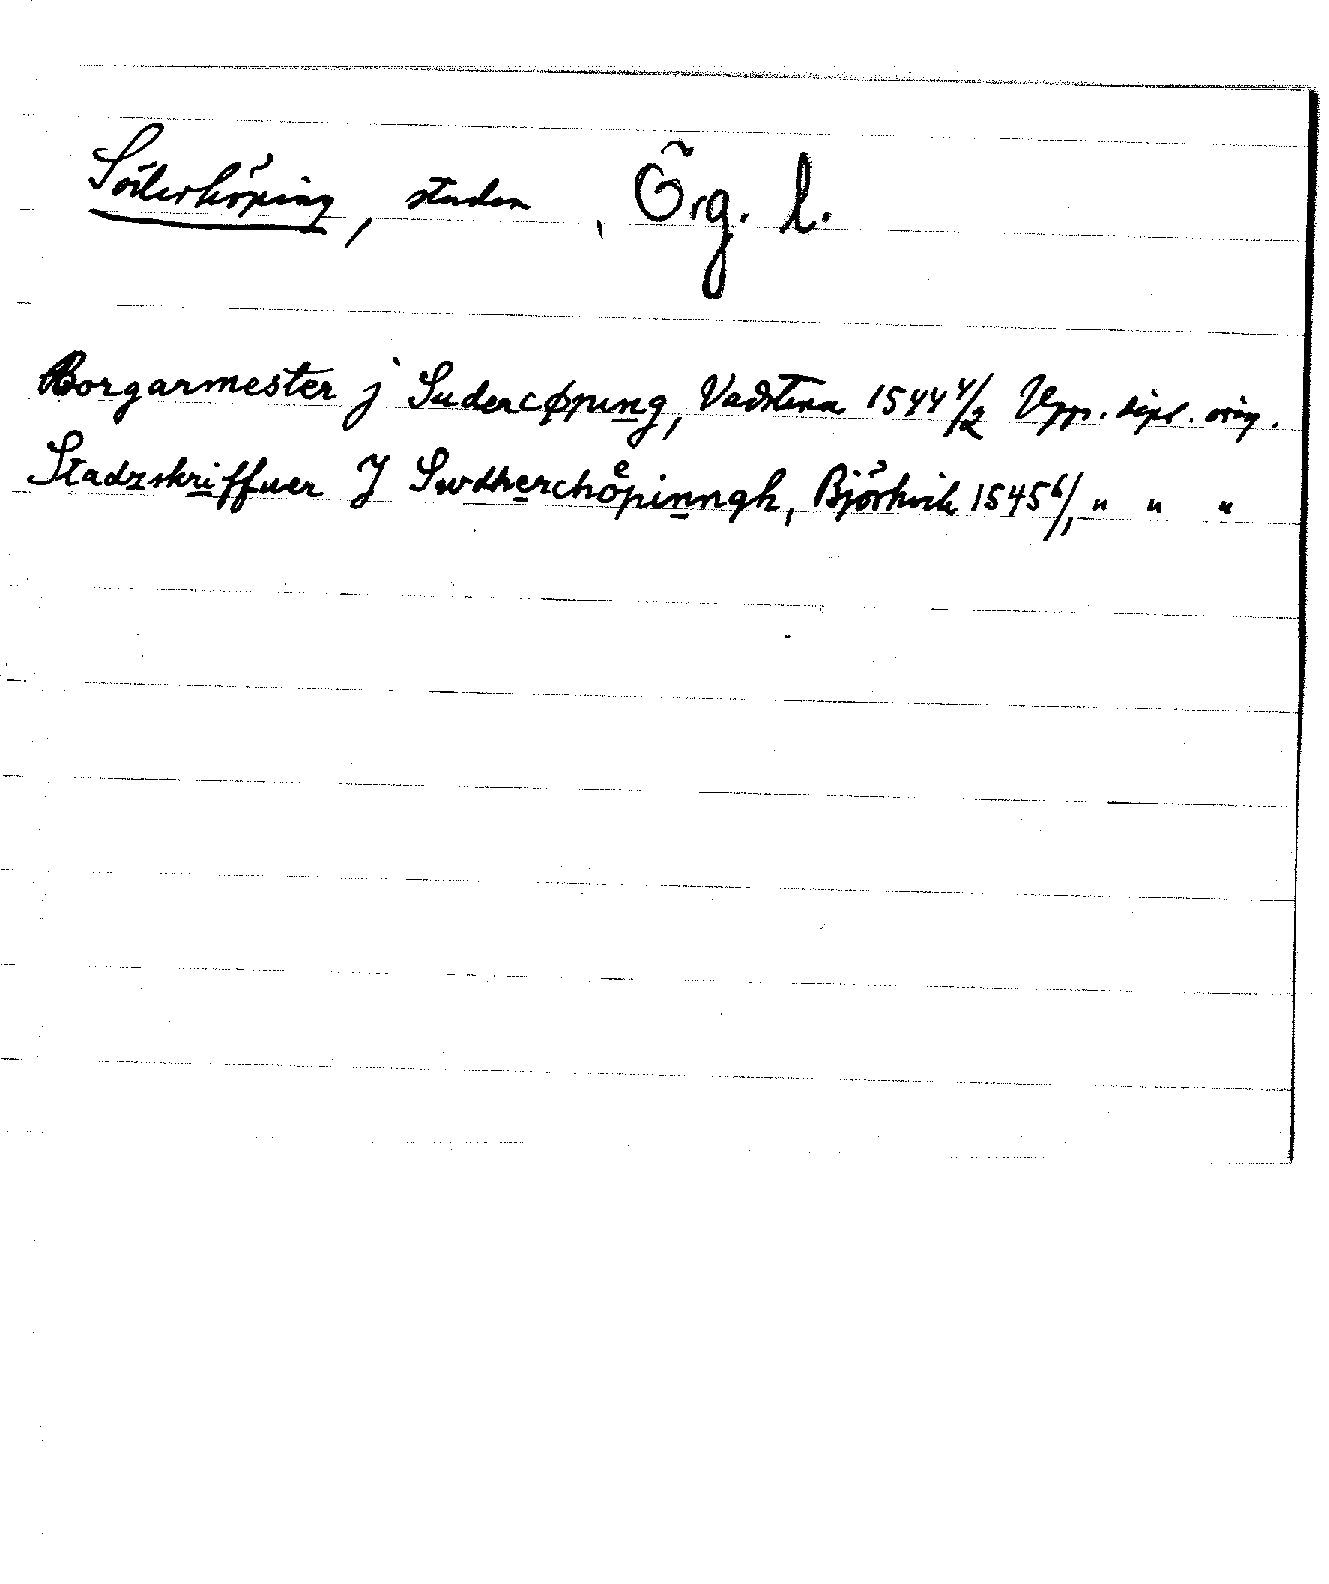 Söderköping, staden, Örg. l.
Borgarmester j Sudercøpung, Vadstena 1544 4/2 Upp. dipl. orig.
Stadzskriffuer J Swdherchöͤpinngh, Björkvik 1545 6/1 " " "